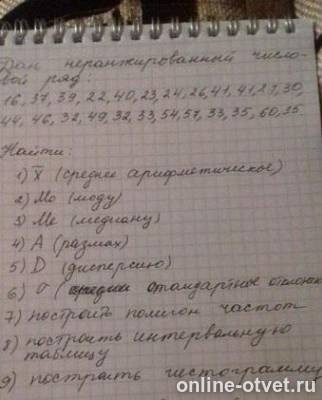 Дан неранжированный число-
вой ряд:
16, 37, 39, 22, 40, 23, 24, 26, 41, 41, 27, 30,
44, 46, 32, 49, 32, 33, 54, 57, 33, 35, 60, 35.
Найти:
1) X̅ (среднее арифметическое)
2) Мо (моду)
3) Ме (медиану)
4) А (размах)
5) D (дисперсию)
6) σ ( стандартное отклонен
7) построить полигон частот
8) построить интервальную
таблицу
9) построить гистограмму
online-otvet.ru